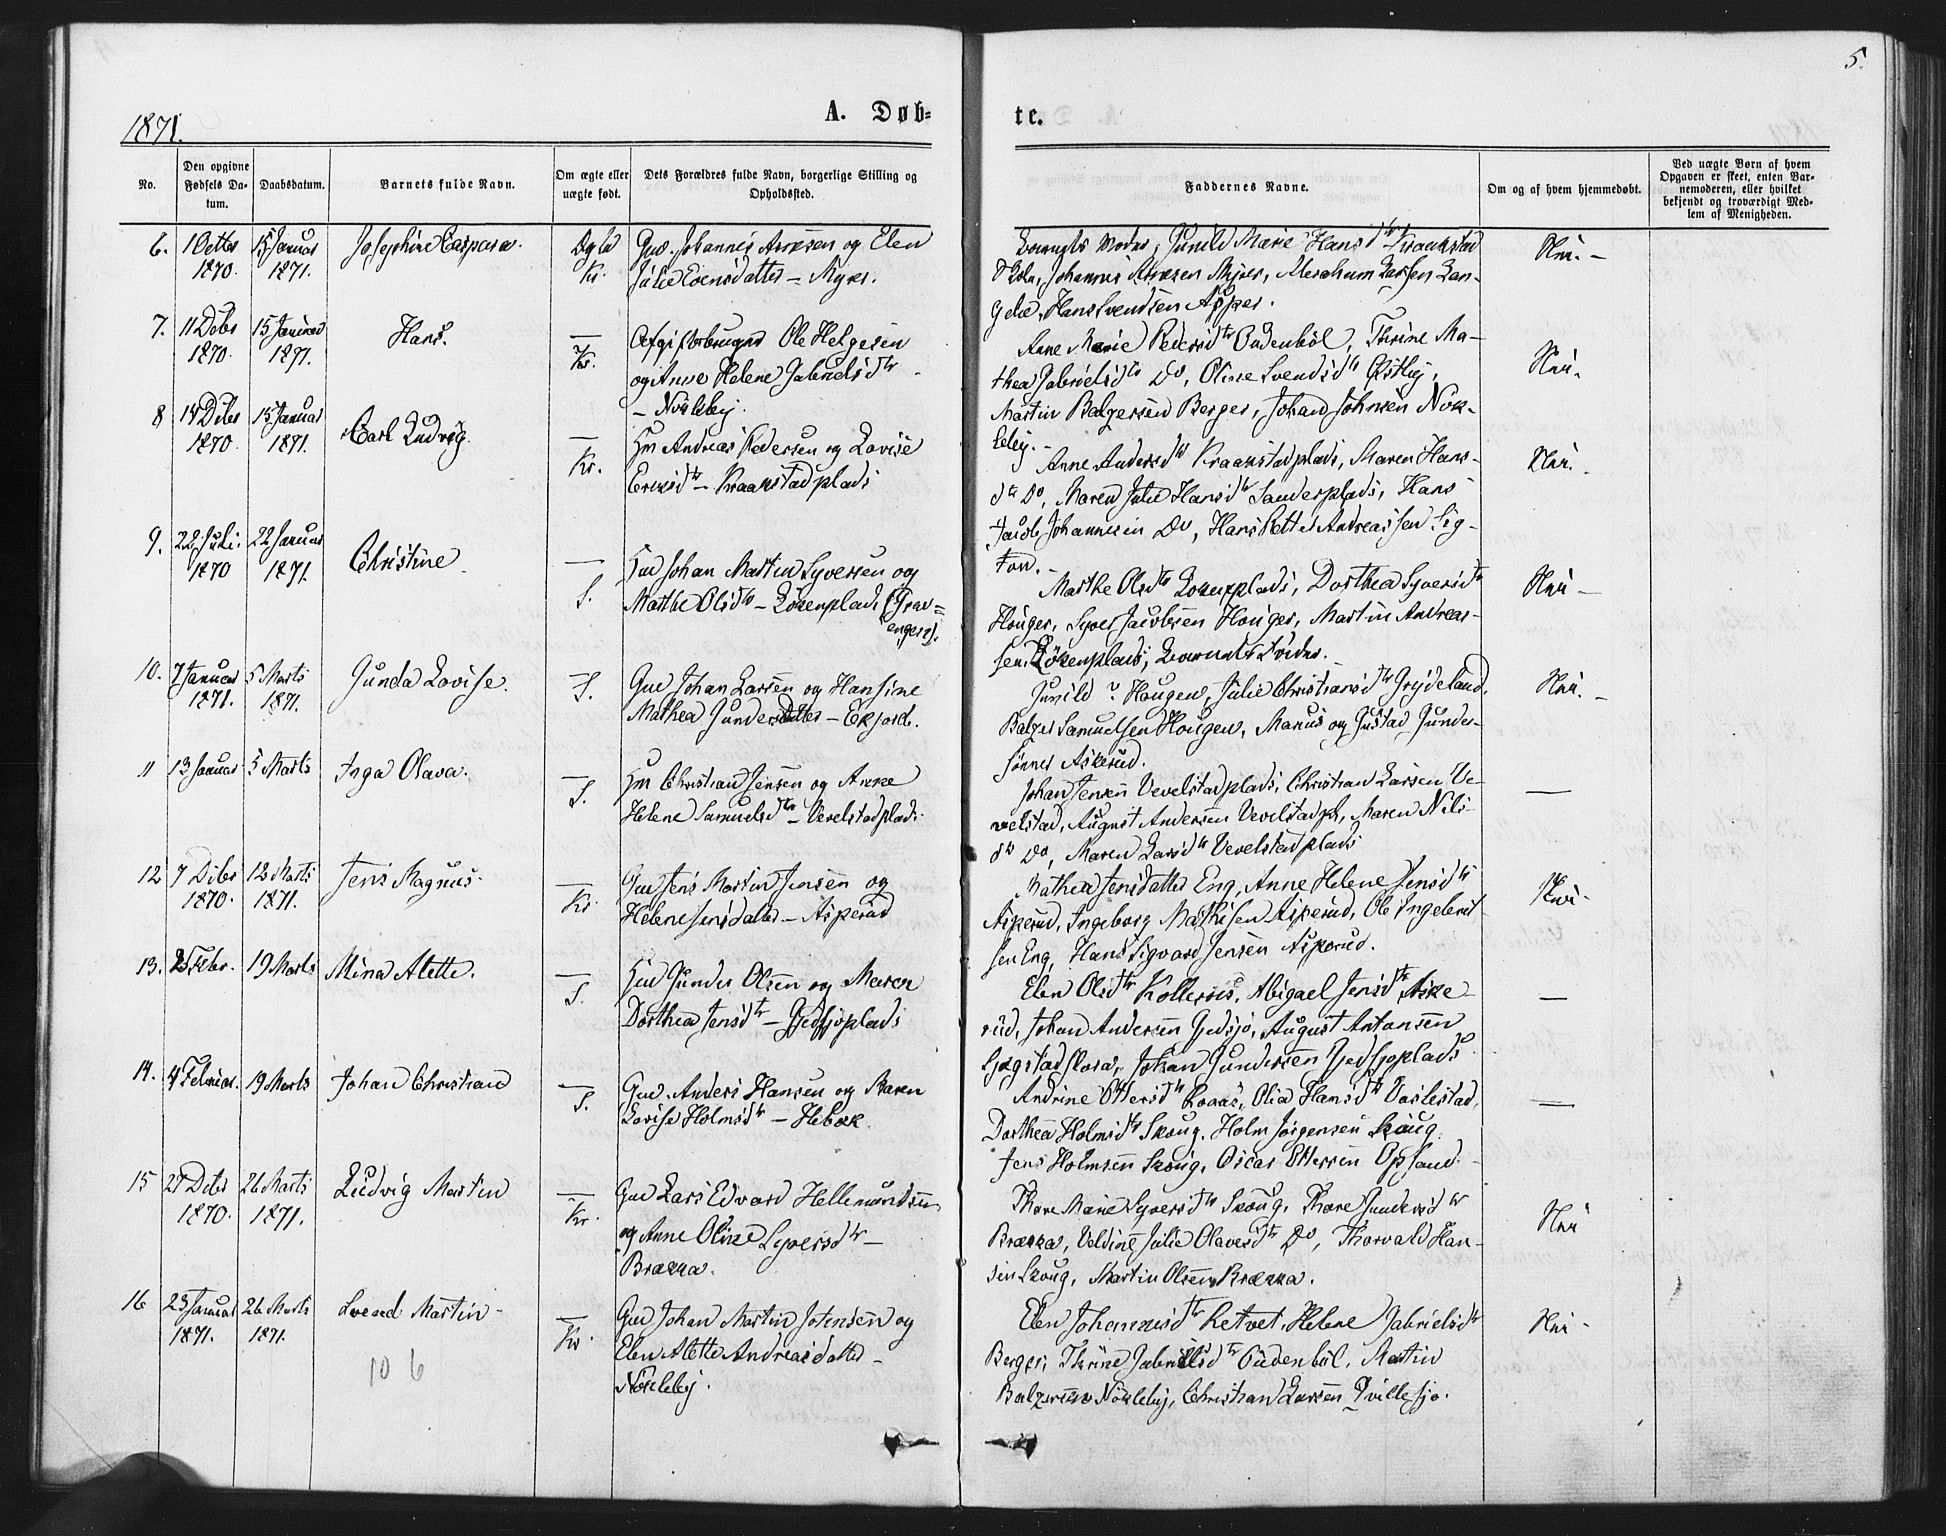 5.
1871.
A. Døb-
te.
No.
Den opgivne
Fødsels Da-
tum.
Daabsdatum.
Barnets fulde Navn.
Om ægte eller
uægte født.
Dets Forældres fulde Navn, borgerlige Stilling og
Opholdssted.
Faddernes Navne.
Om og af hvem hjemmedøbt.
Ved uægte Børn af hvem
Opgaven er skeet, enten Bar-
nemoderen, eller hvilket
bekjendt og troværdigt Med-
lem af Menigheden.
6.
1870.
15 Januar
1871.
Josephine Caspara.
Kr.
Gud. Johannes og Elen
Julie Evensdatter –
Barnets Moder, Gunild Marie Hansdtr Kraakstad
Johannes Abraham Larsen Lan-
Hans Svendsen
Nei. –
7.
11 Debr
1870.
15 Januar
1871.
Hans.
—
Kr.
Afgiftsbruger Ole Helgesen
og Anne Helene Gabrielsdtr
– Nökleby.
Anne Marie Pedersdtr Oudenböl, Thrine Ma-
thea Gabrielsdtr Do, Oline Svendsdtr Östby,
Martin Balzersen Berger, Johan Johnsen Nök-
leby. –
Nei.
8
14 Debr
1870.
15 Januar
1871.
Carl Ludvig.
—
Kr.
Hm Andreas Pedersen og Lovise
Eriksdtr – Kraakstadplads
Anne Andersdtr Kraakstadplads, Maren Hans-
dtr Do, Maren Julie Hansdtr Sanderplads, Hans
Jacob Johannesen Do, Hans Petter Andreassen Sig-
Nei.
9.
22 Juli
1870
22 Januar
1871.
Christine
—
S.
Hm Johan Martin Syversen og
Marthe Olsdtr – Lökenplads (Grav-
engen).
Marthe Olsdtr Lökenplads, Dorthea Syversdtr
Houger, Syver Jacobsen Houger, Martin Andreas-
sen Lökenplads, Barnets Fader.
Nei –
10.
7 Januar
1871.
5 Marts
1871.
Gunda Lovise.
—
S.
Gud Johan Larsen og Hansine
Mathea Gundersdatter –
Gunild ? Haugen, Julie Christiansdtr Grydeland,
Balzer Samuelsen Hougen, Marius og Gustad Gunder-
sönner Askerud.
Nei. –
11
13 Januar
5 Marts
Inga Olava.
—
S.
Hm Christian Jensen og Anne
Helene Samuelsdtr – Vevelstadplads
Johan Jensen Vevelstadplads, Christian Larsen Ve-
velstad, August Andersen Vevelstadpl, Maren Nils-
dtr Do, Maren Larsdtr Vevelstadplads
—
12
7 Debr
1870.
12 Marts
1871.
Jens Magnus.
—
Kr
Gud Jens Martin Jensen og
Helene Jensdatter – Asperud
Mathea Jensdatter Eng, Anne Helene Jensdtr
Asperud, Ingeborg Mathisen Asperud, Ole Ingebret-
sen Eng, Hans Sigvard Jensen Asperud.
Nei.
13.
Febr.
19 Marts
Mina Alette.
—
S.
Hm Gunder Olsen og Maren
Dorthea Jensdtr – Gjedsjöplads
Elen Olsdtr Kolleraas, Abigael Jensdtr Aske-
rud, Johan Andersen Gjedsjö, August Antonsen
Johan Gundersen Gjedsjöplads
—
14.
4 Februar.
19 Marts
Johan Christian
—
S.
Gud. Anders Hansen og Karen
Lovise Holmsdtr – Hebæk.
Andrine Ottersdtr Olia Hansdtr
Dorthea Holmsdtr Skoug, Holm Jörgensen Skoug
Jens Holmsen Skoug, Oscar Ottersen Opsand
—
15
27 Debr
1870.
26 Marts
1871.
Ludvig Martin
—
Kr.
Gud Lars Edvard Hellemundsen
og Anne Oline Syversdtr –
Brække.
Thore Marie Syversdtr Skoug, Thore Gundersdtr
Brække, Veldine Julie Olaversdtr Do, Thorvald Han-
sen Skoug, Martin Olsen Brække.
Nei
16
23 Januar
1871.
26 Marts
1871.
Svend Martin
—
Kr.
Gud Johan Martin Johnsen og
Elen Alette Andreasdatter –
Nökleby.
Elen Johannesdtr Ketvet, Helene Gabrielsdtr
Berger, Thrine Gabrielsdtr Oudenböl, Martin
Balzersen Nökleby, Christian Larsen Qvillesjö.
Nei –
10 6